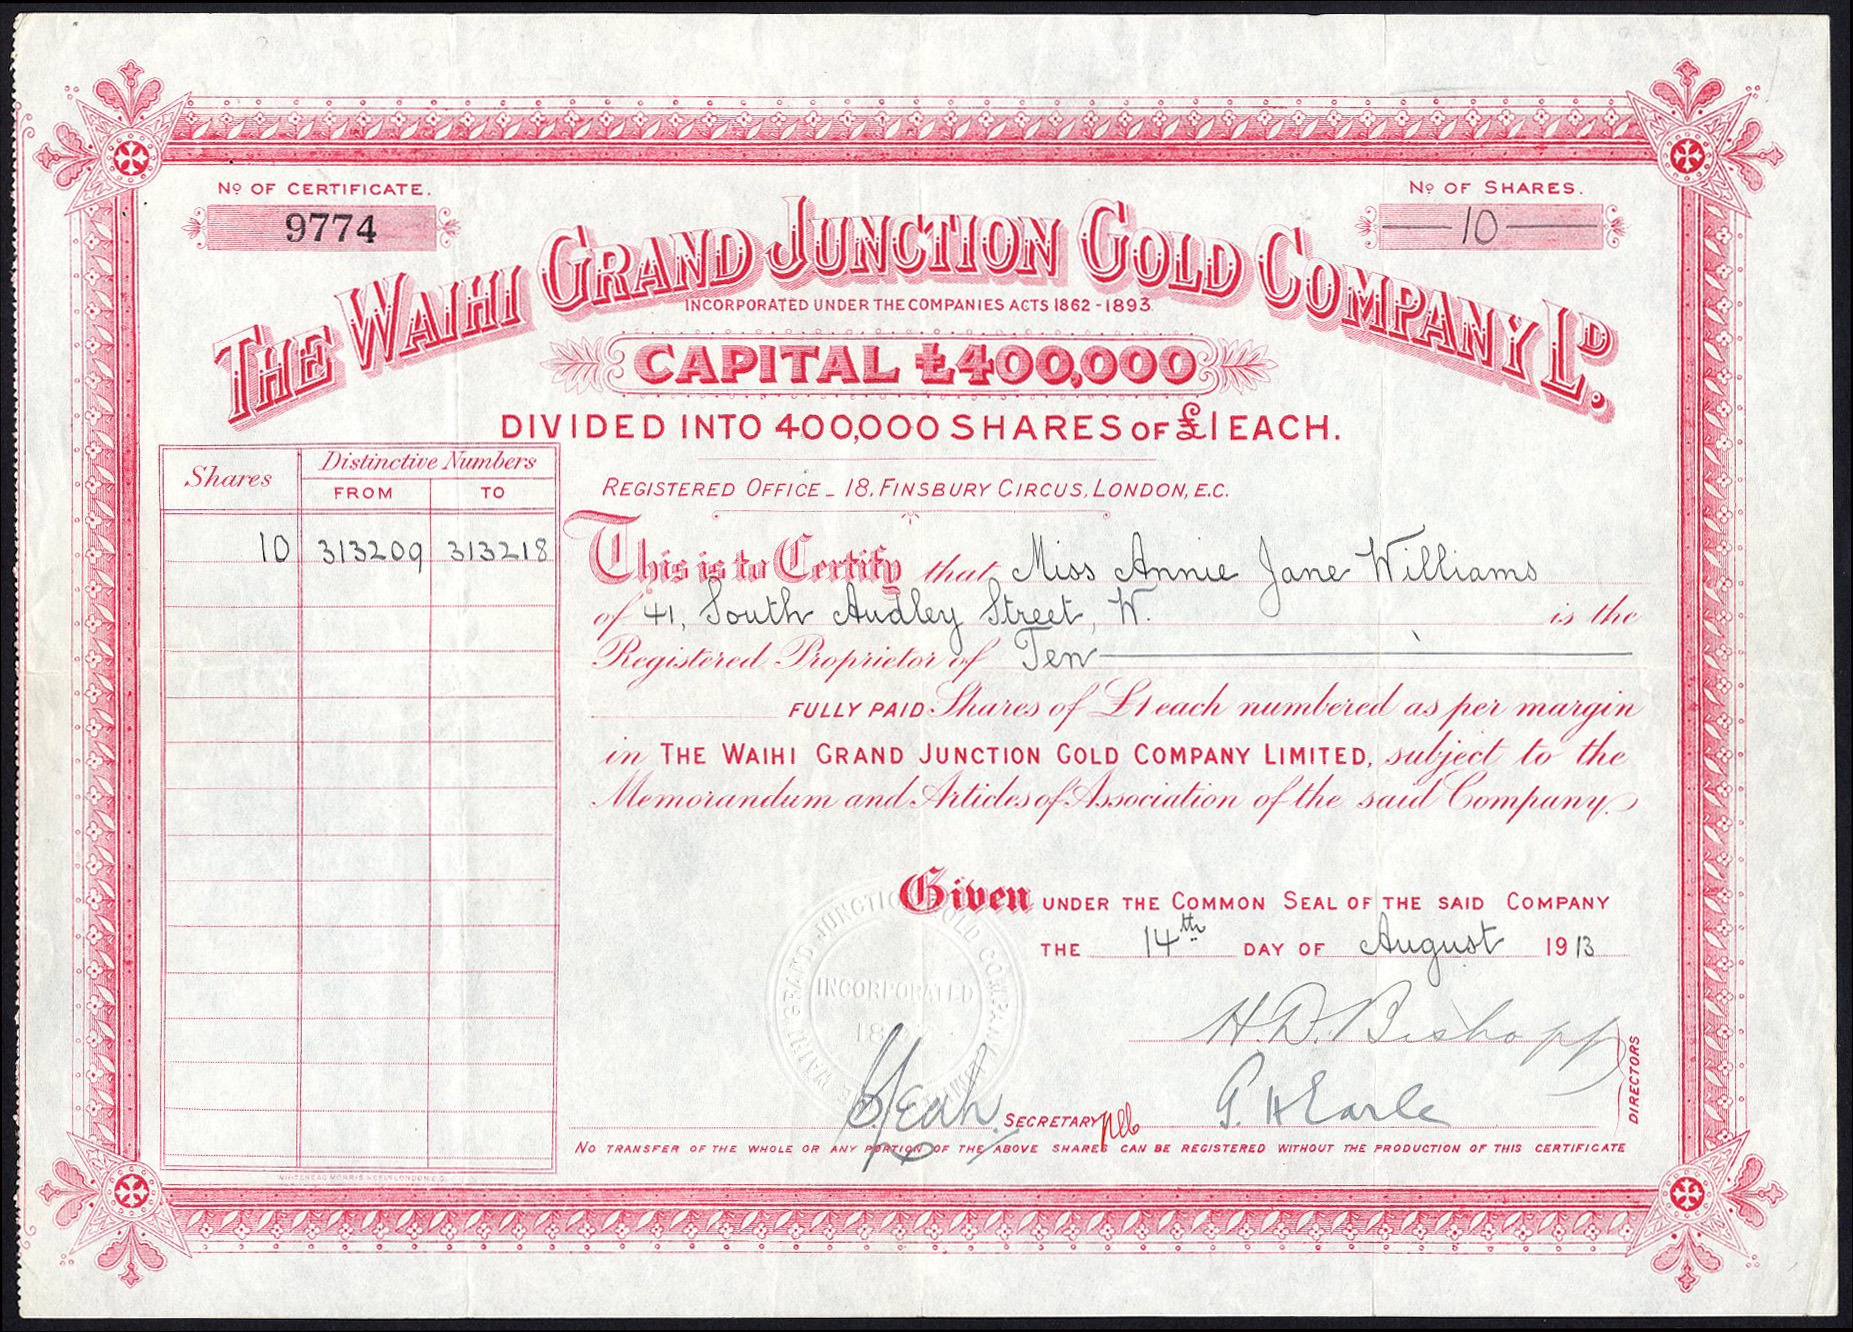 Nº OF CERTIFICATE.
9774
Nº OF SHARES.
10
THE WAIHI GRAND JUNCTION GOLD COMPANY LD.
INCORPORATED UNDER THE COMPANIES ACTS 1862-1893.
CAPITAL £400,000
DIVIDED INTO 400,000 SHARES OF £1 EACH.
REGISTERED OFFICE_ 18, FINSBURY CIRCUS, LONDON, E.C.
Shares
Distinctive Numbers
FROM
TO
10 313209 313218
This is to Certify that Miss Annie Jane Williams
of 41, South Audley Street, W. is the
Registered Proprietor of Ten
FULLY PAID Shares of £1 each numbered as per margin
in THE WAIHI GRAND JUNCTION GOLD COMPANY LIMITED, subject to the
Memorandum and Articles of Association of the said Company.
Given UNDER THE COMMON SEAL OF THE SAID COMPANY
THE 14th DAY OF August 1913
GRAND JUNCTION GOLD COMPANY
INCORPORATED
H. D. Bishopp
G. H Earle
DIRECTORS
SECRETARY
NO TRANSFER OF THE WHOLE OR ANY PORTION OF THE ABOVE SHARES CAN BE REGISTERED WITHOUT THE PRODUCTION OF THIS CERTIFICATE